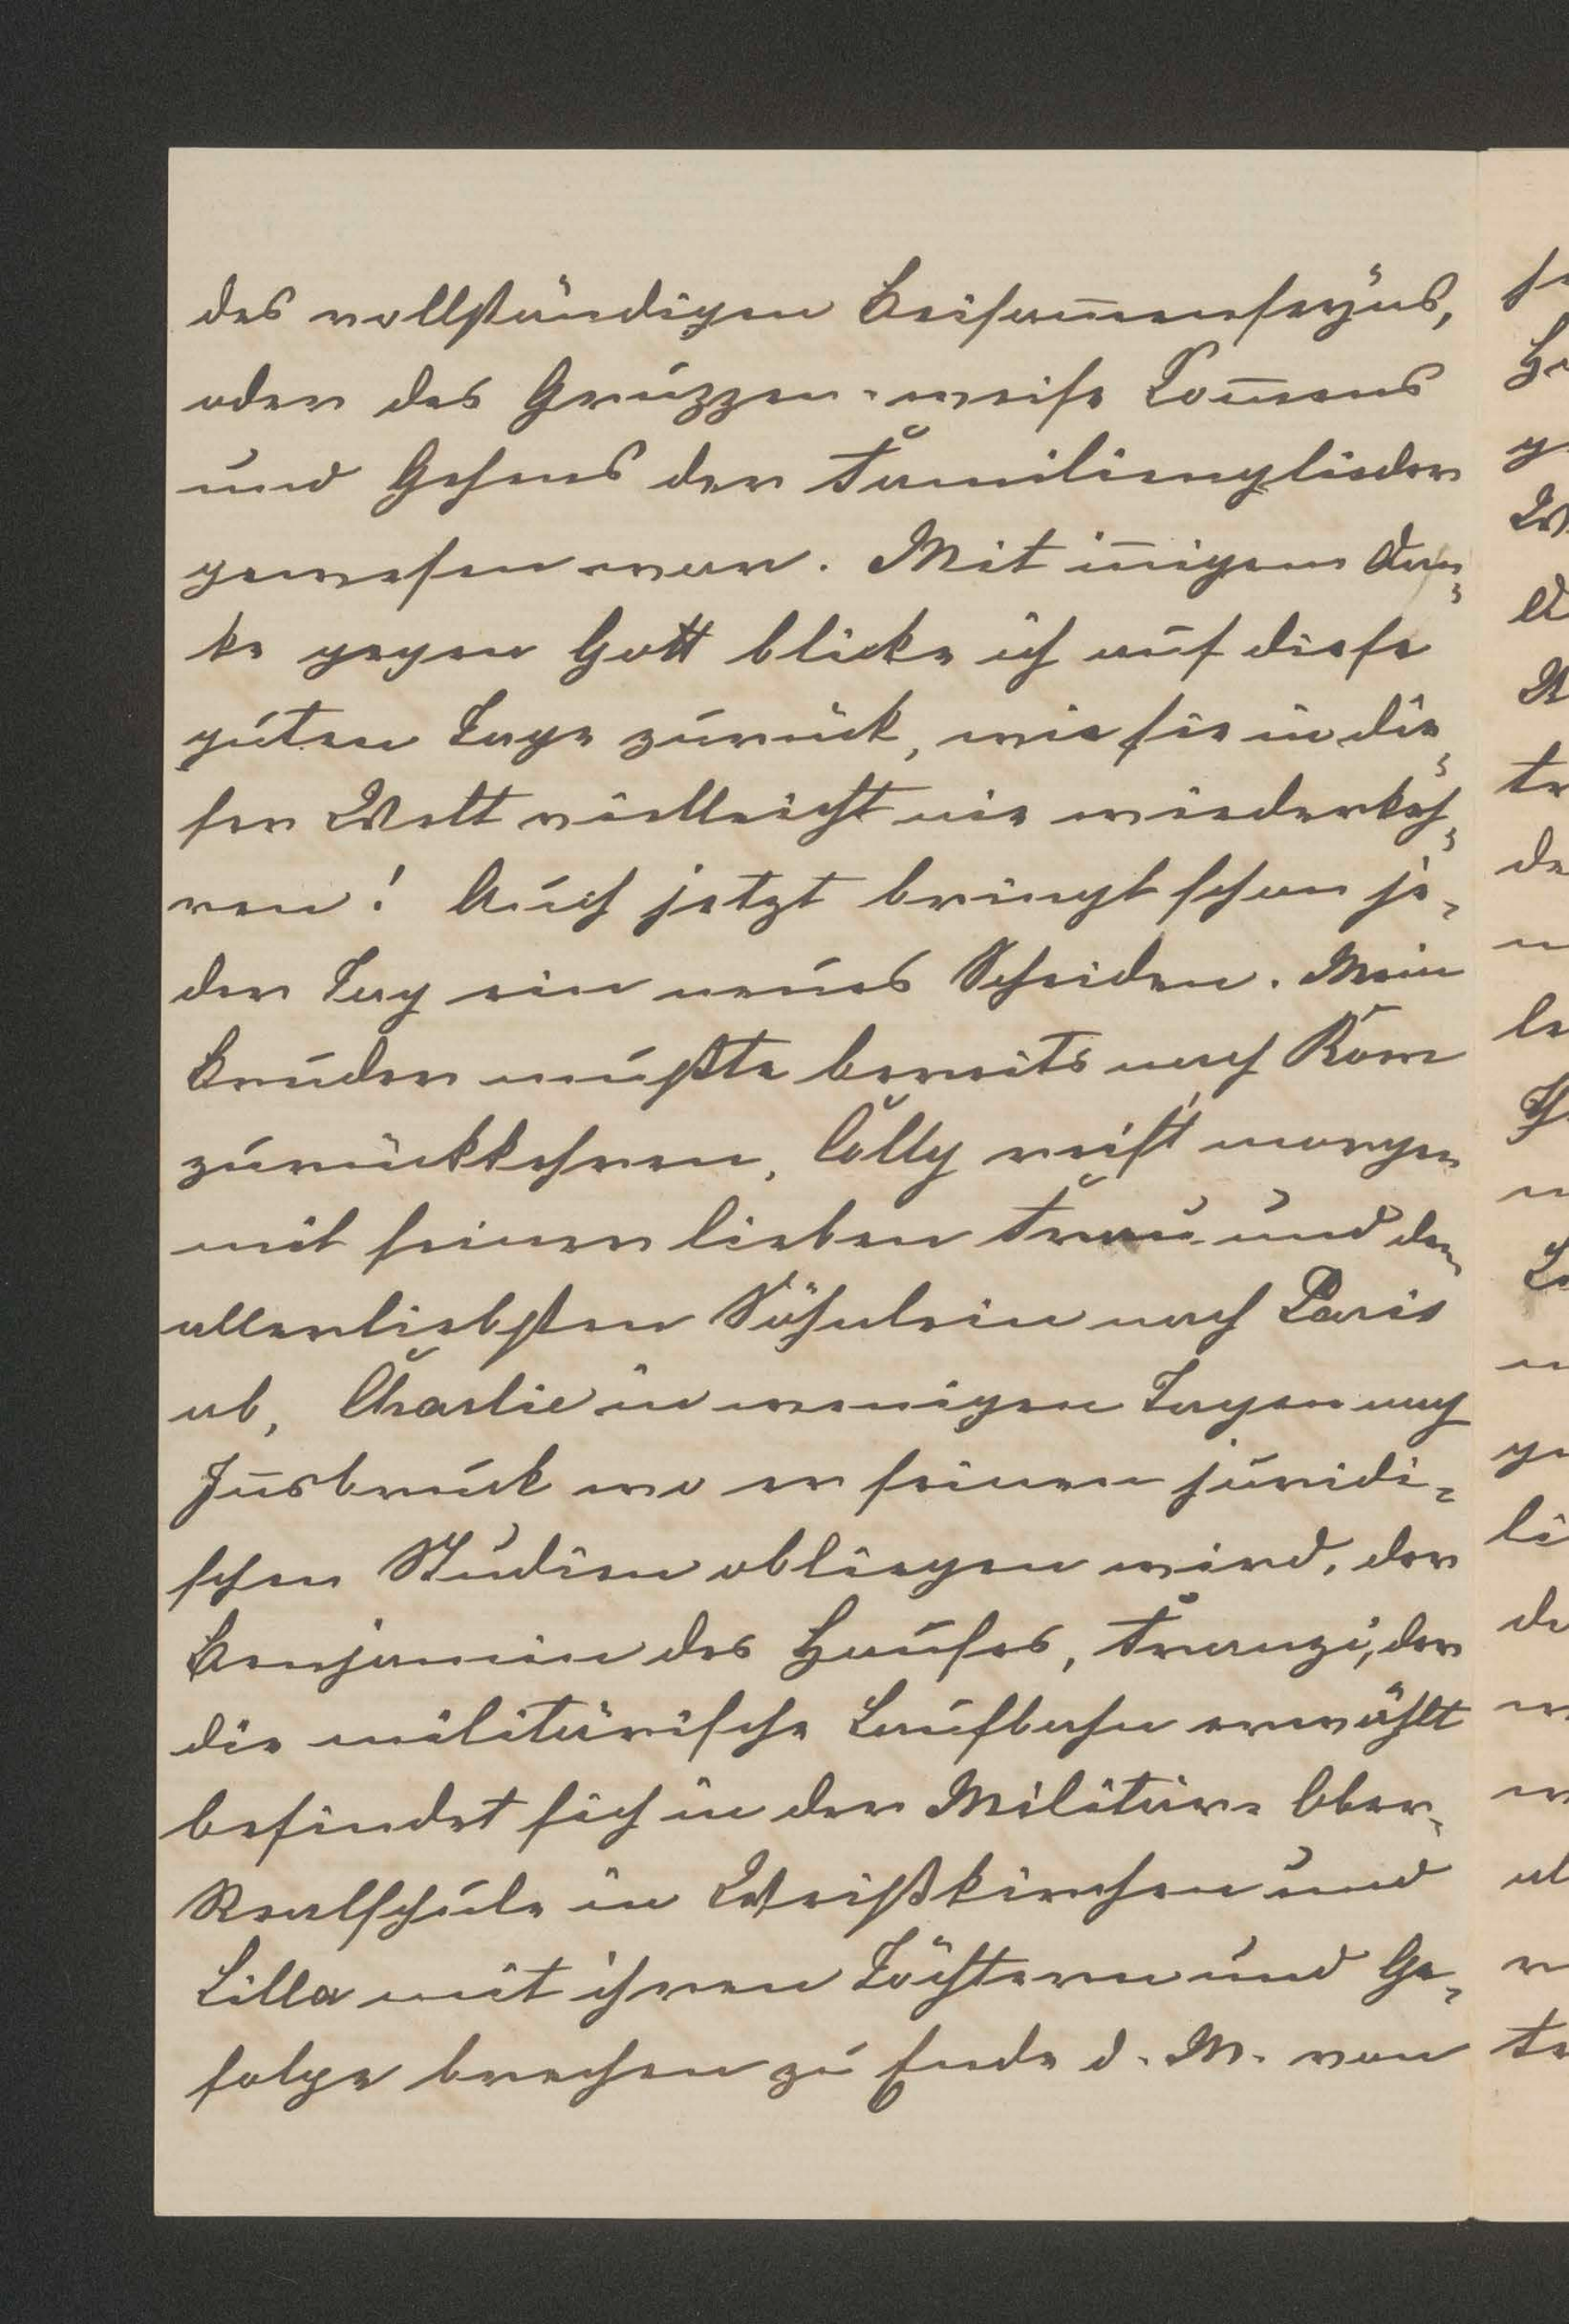 des vollständigen Beisam̅enseÿns,
oder des Gruppen-weise Kom̅ens
und Gehens der Familienglieder
gewesen war. Mit in̅igem Dan¬
ke gegen Gott blicke ich auf diese
guten Tage zurück, wie sie in die¬
ser Welt vielleicht nie wiederkeh¬
ren! Auch jetzt bringt schon je¬
der Tag ein neues Scheiden. Mein
Bruder mußte bereits nach Rom
zurückkehren, Cölly reist morgen
mit seiner lieben Frau und dem
allerliebsten Söhnlein nach Paris
ab, Charlie in wenigen Tagen nach
In̅sbruck wo er seinen juridi¬
schen Studien obliegen wird, der
Benjamin des Hauses, Franzi, der
die militärische Laufbahn erwählt
befindet sich in der Militär-Ober¬
Realschule in Weißkirchen und
Lilla mit ihren Töchtern und Ge¬
folge brechen zu Ende d. M. von